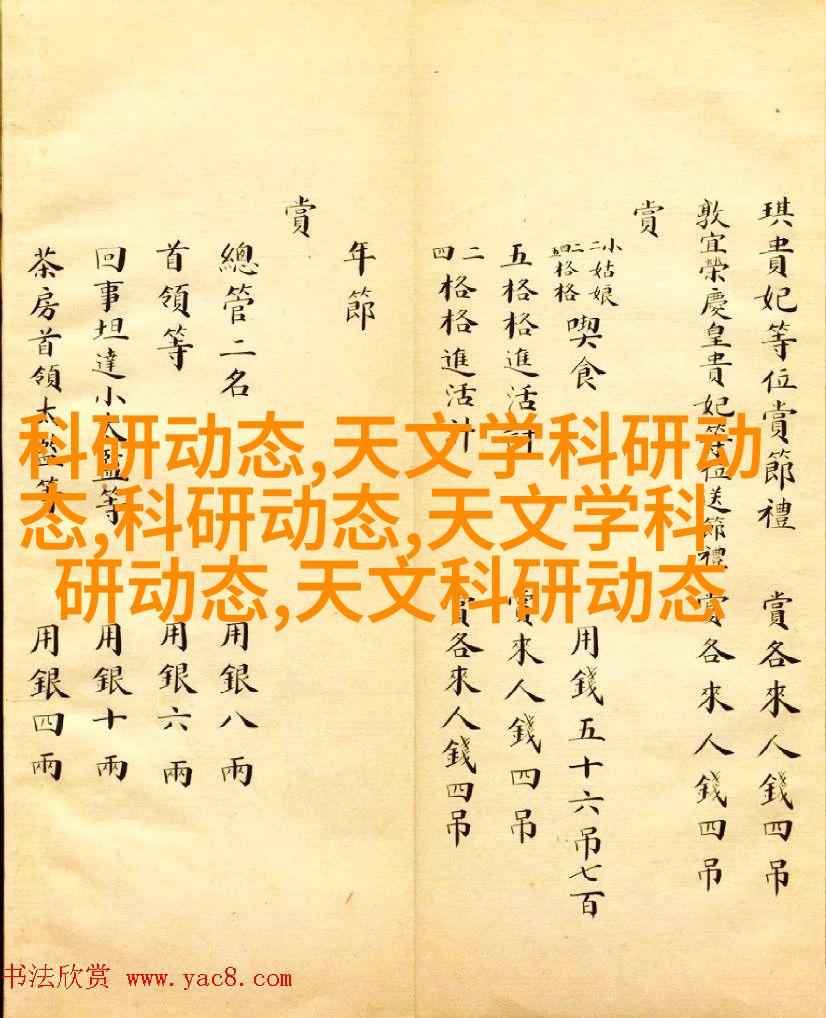 琪貴妃等位賞節禮 賞各來人錢四吊
敦宜榮慶皇貴妃等位送節禮 賞各來人錢四吊
賞
小姑娘
二二格格
四格格
喫食 用錢五十六吊七百
五格格進活計 賞來人錢四吊
二四格格進活計 賞各來人錢四吊
年節
賞
總管二名 用銀八兩
首領等 用銀六兩
回事坦達小太監等 用銀十兩
茶房首領太監等 用銀四兩
科研动态,天文学科研动
态,科研动态,天文学科
研动态,天文科研动态
书法欣赏 www.yac8.com